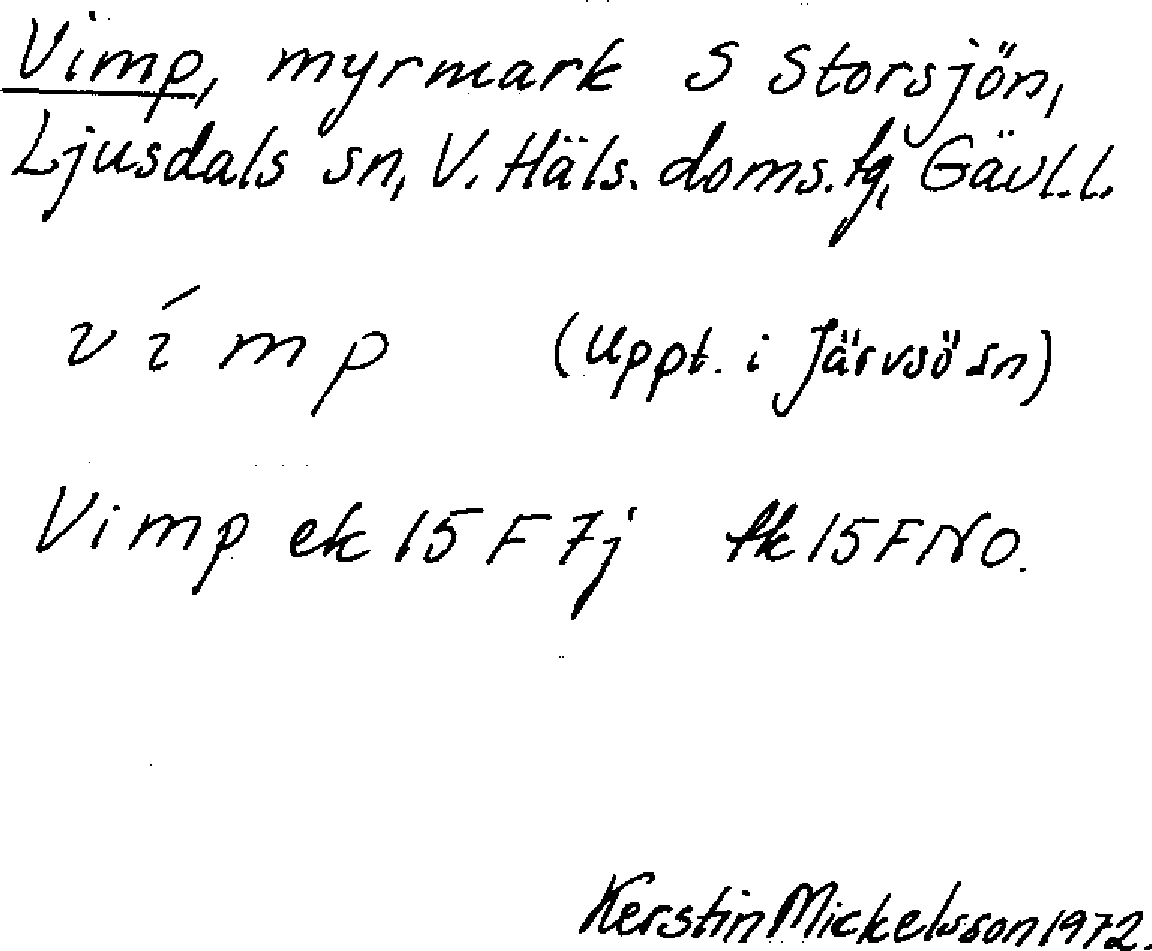 Vimp, myrmark S Storsjön,
Ljusdals sn, V. Häls. doms.tg, Gävl.l.
vímp (Uppt. i Järvsö sn)
Vimp ek 15 F 7j tk 15 F NO.
Kerstin Mickelsson 1972.